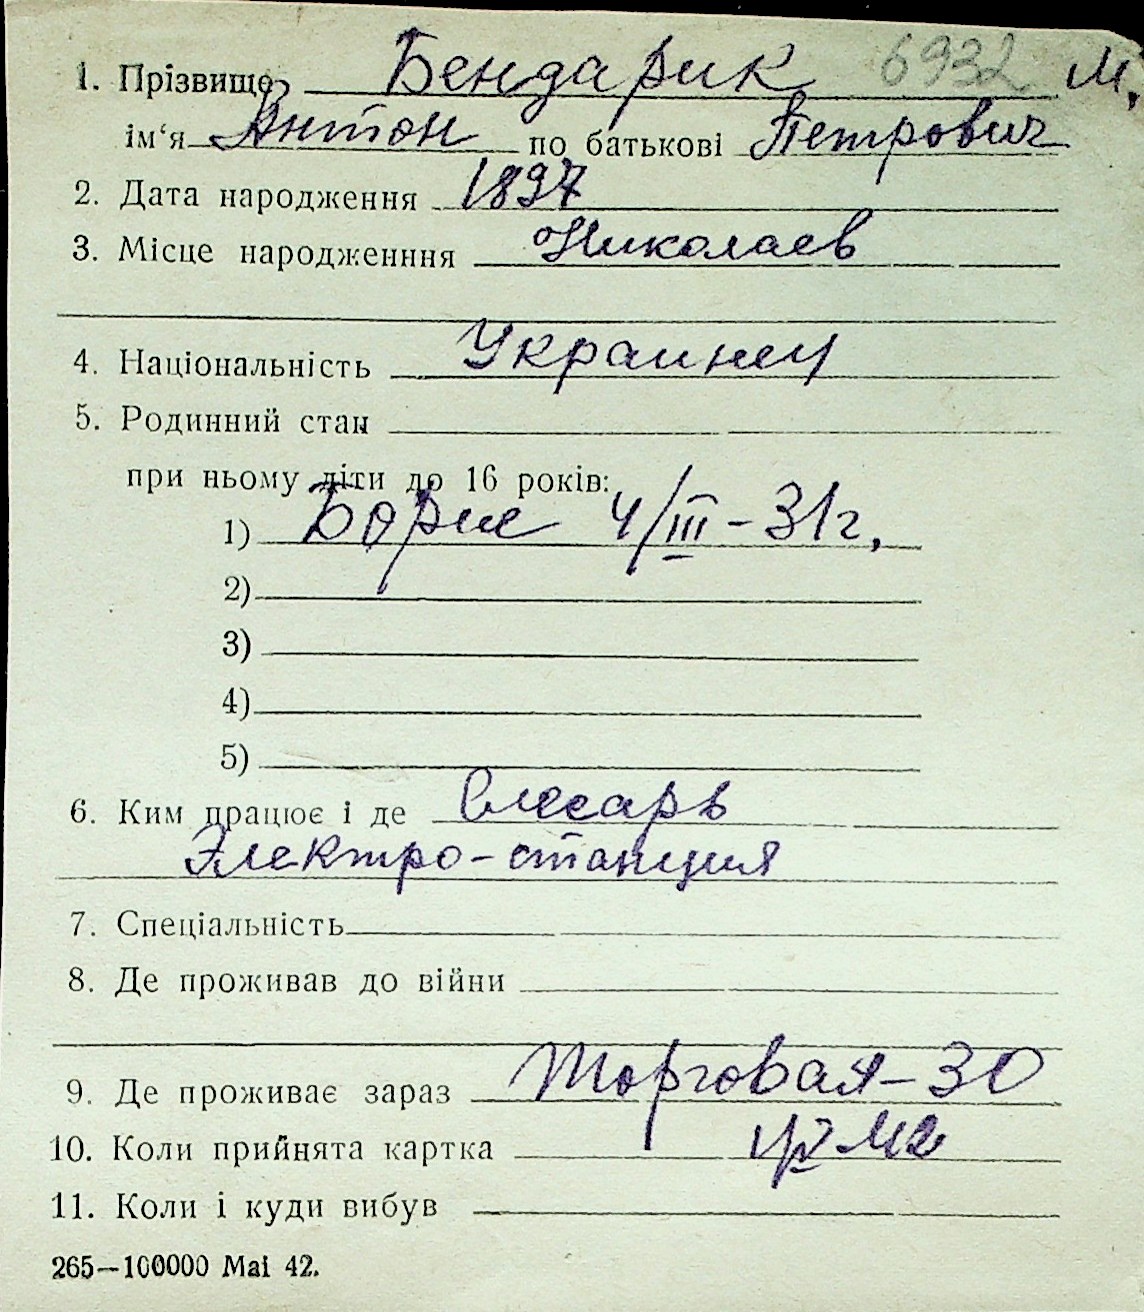 1. Прізвище Бендарик 6932 М.
ім‘я Антон по батькові Петрович
2. Дата народження 1897
3. Місце народженння Николаев
4. Національність Украинец
5. Родинний стан
при ньому діти до 16 років:
1) Борис 4/III-31г.
2)
3)
4)
5)
6. Ким працює і де Слесарь
Электро-станция
7. Спеціальність
8. Де проживав до війни
9. Де проживає зараз Торговая-30
10. Коли прийнята картка
11. Коли і куди вибув
265—100000 Mai 42.